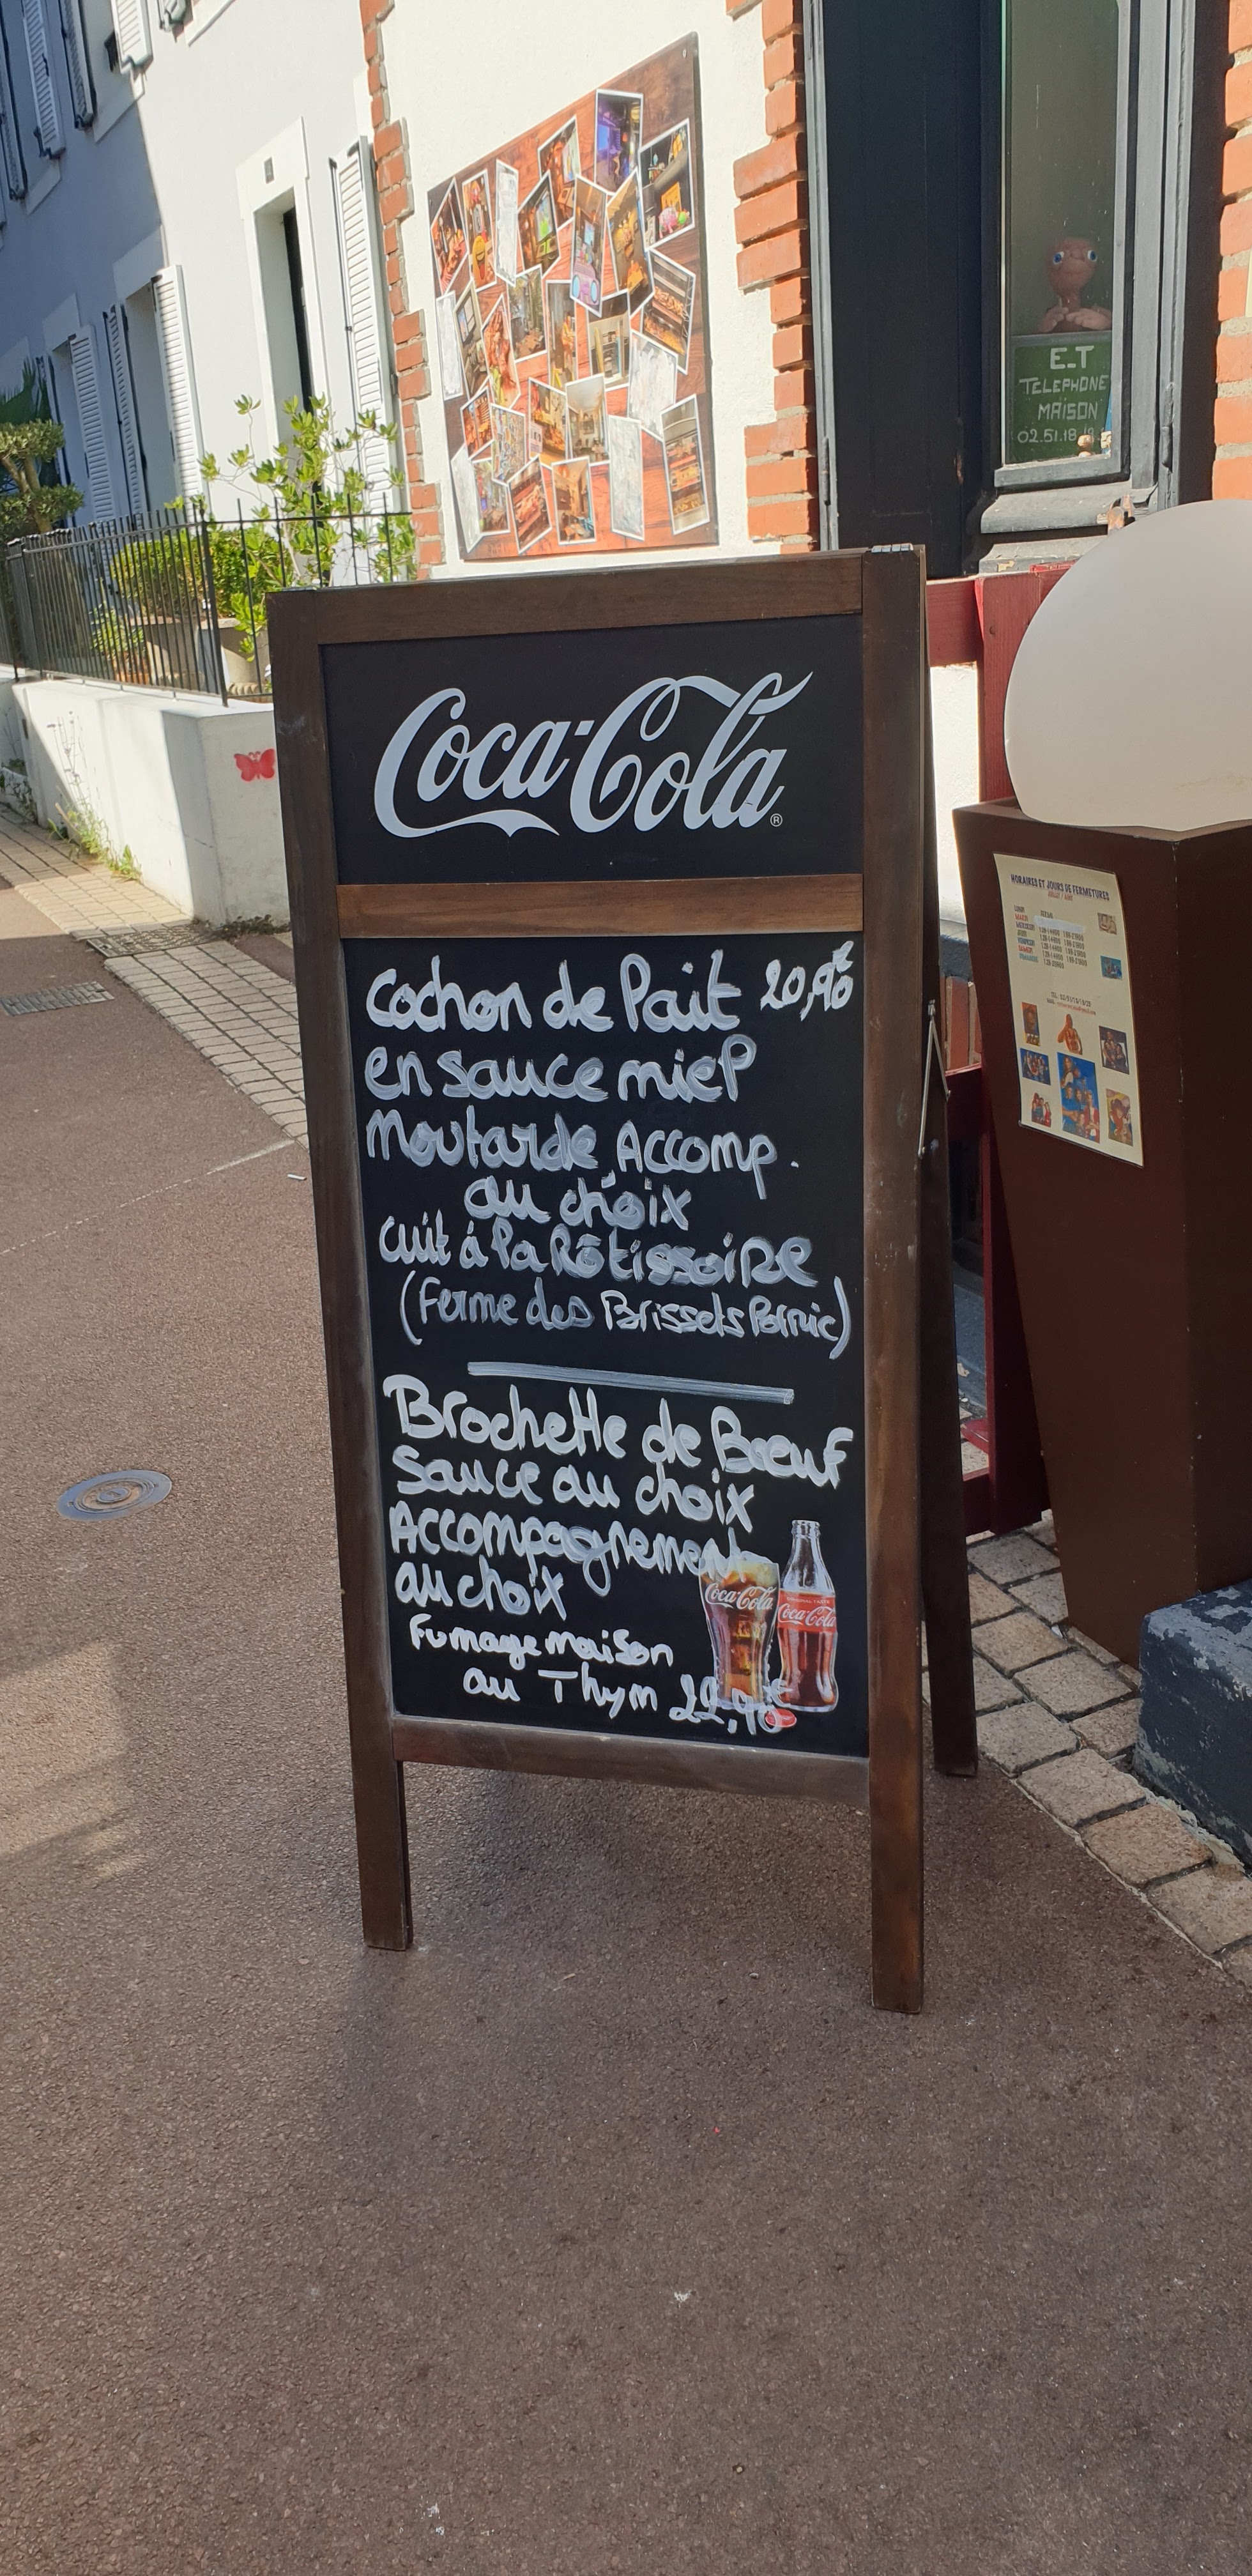 E.T
TELEPHONE
MAISON
02.51.18
Coca-Cola®
Cochon de Pait 20,90€
en sauce miel
Moutarde Accomp.
au choix
cuit à la Rôtissoire
(Ferme des Brissets Pornic)
Brochette de Bœuf
Sauce au choix
Accompagnement
au choix
Fumage maison
au Thym 22,90€
Coca-Cola
Coca-Cola
HORAIRES ET JOURS DE FERMETURES